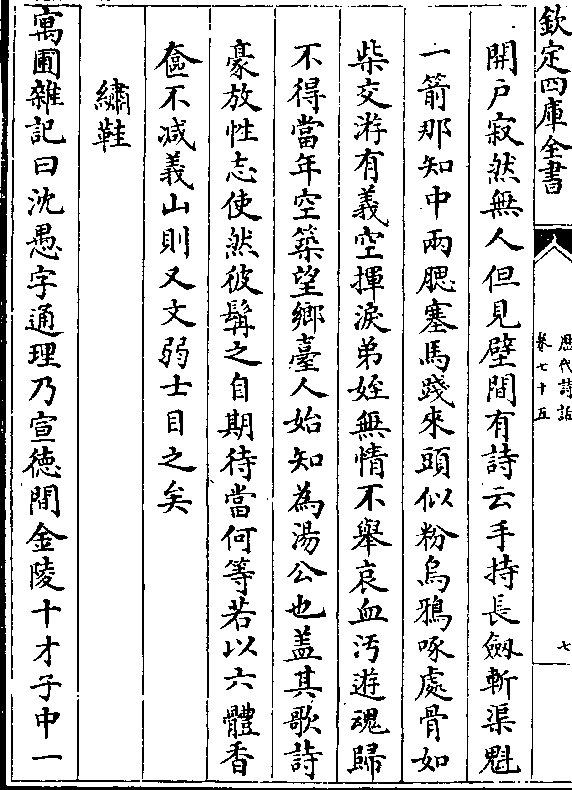 欽定四庫全書
歷代詩話
卷七十五
七
開戶寂然無人但見壁間有詩云手持長劔斬渠魁
一箭那知中兩腮塞馬踐來頭似粉烏鴉啄處骨如
柴交游有義空揮淚弟姪無情不舉哀血污遊魂歸
不得當年空築望鄉臺人始知為湯公也盖其歌詩
豪放性志使然彼髯之自期待當何等若以六體香
奩不减義山則又文弱士目之矣
繡鞋
寓圃雜記曰沈愚字通理乃宣徳間金陵十才子中一